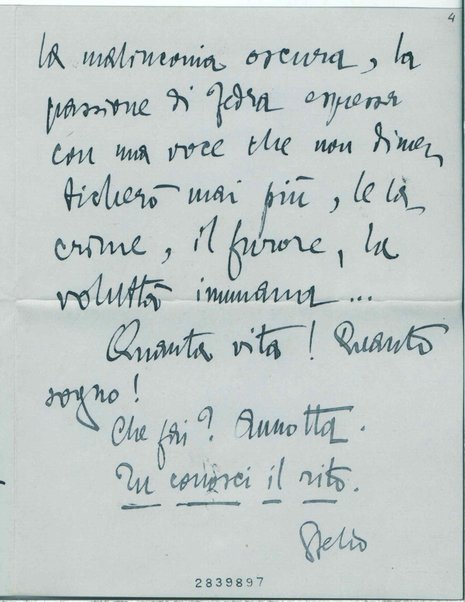 4
la malinconia oscura, la
passione di Fedra espressa
con una voce che non dimen
ticherò mai più, le la
crime, il furore, la
voluttà inumana ...
Quanta vita! Quanto
sogno!
Che fai? Annotta.
Tu conosci il rito.
Stelio
2839897